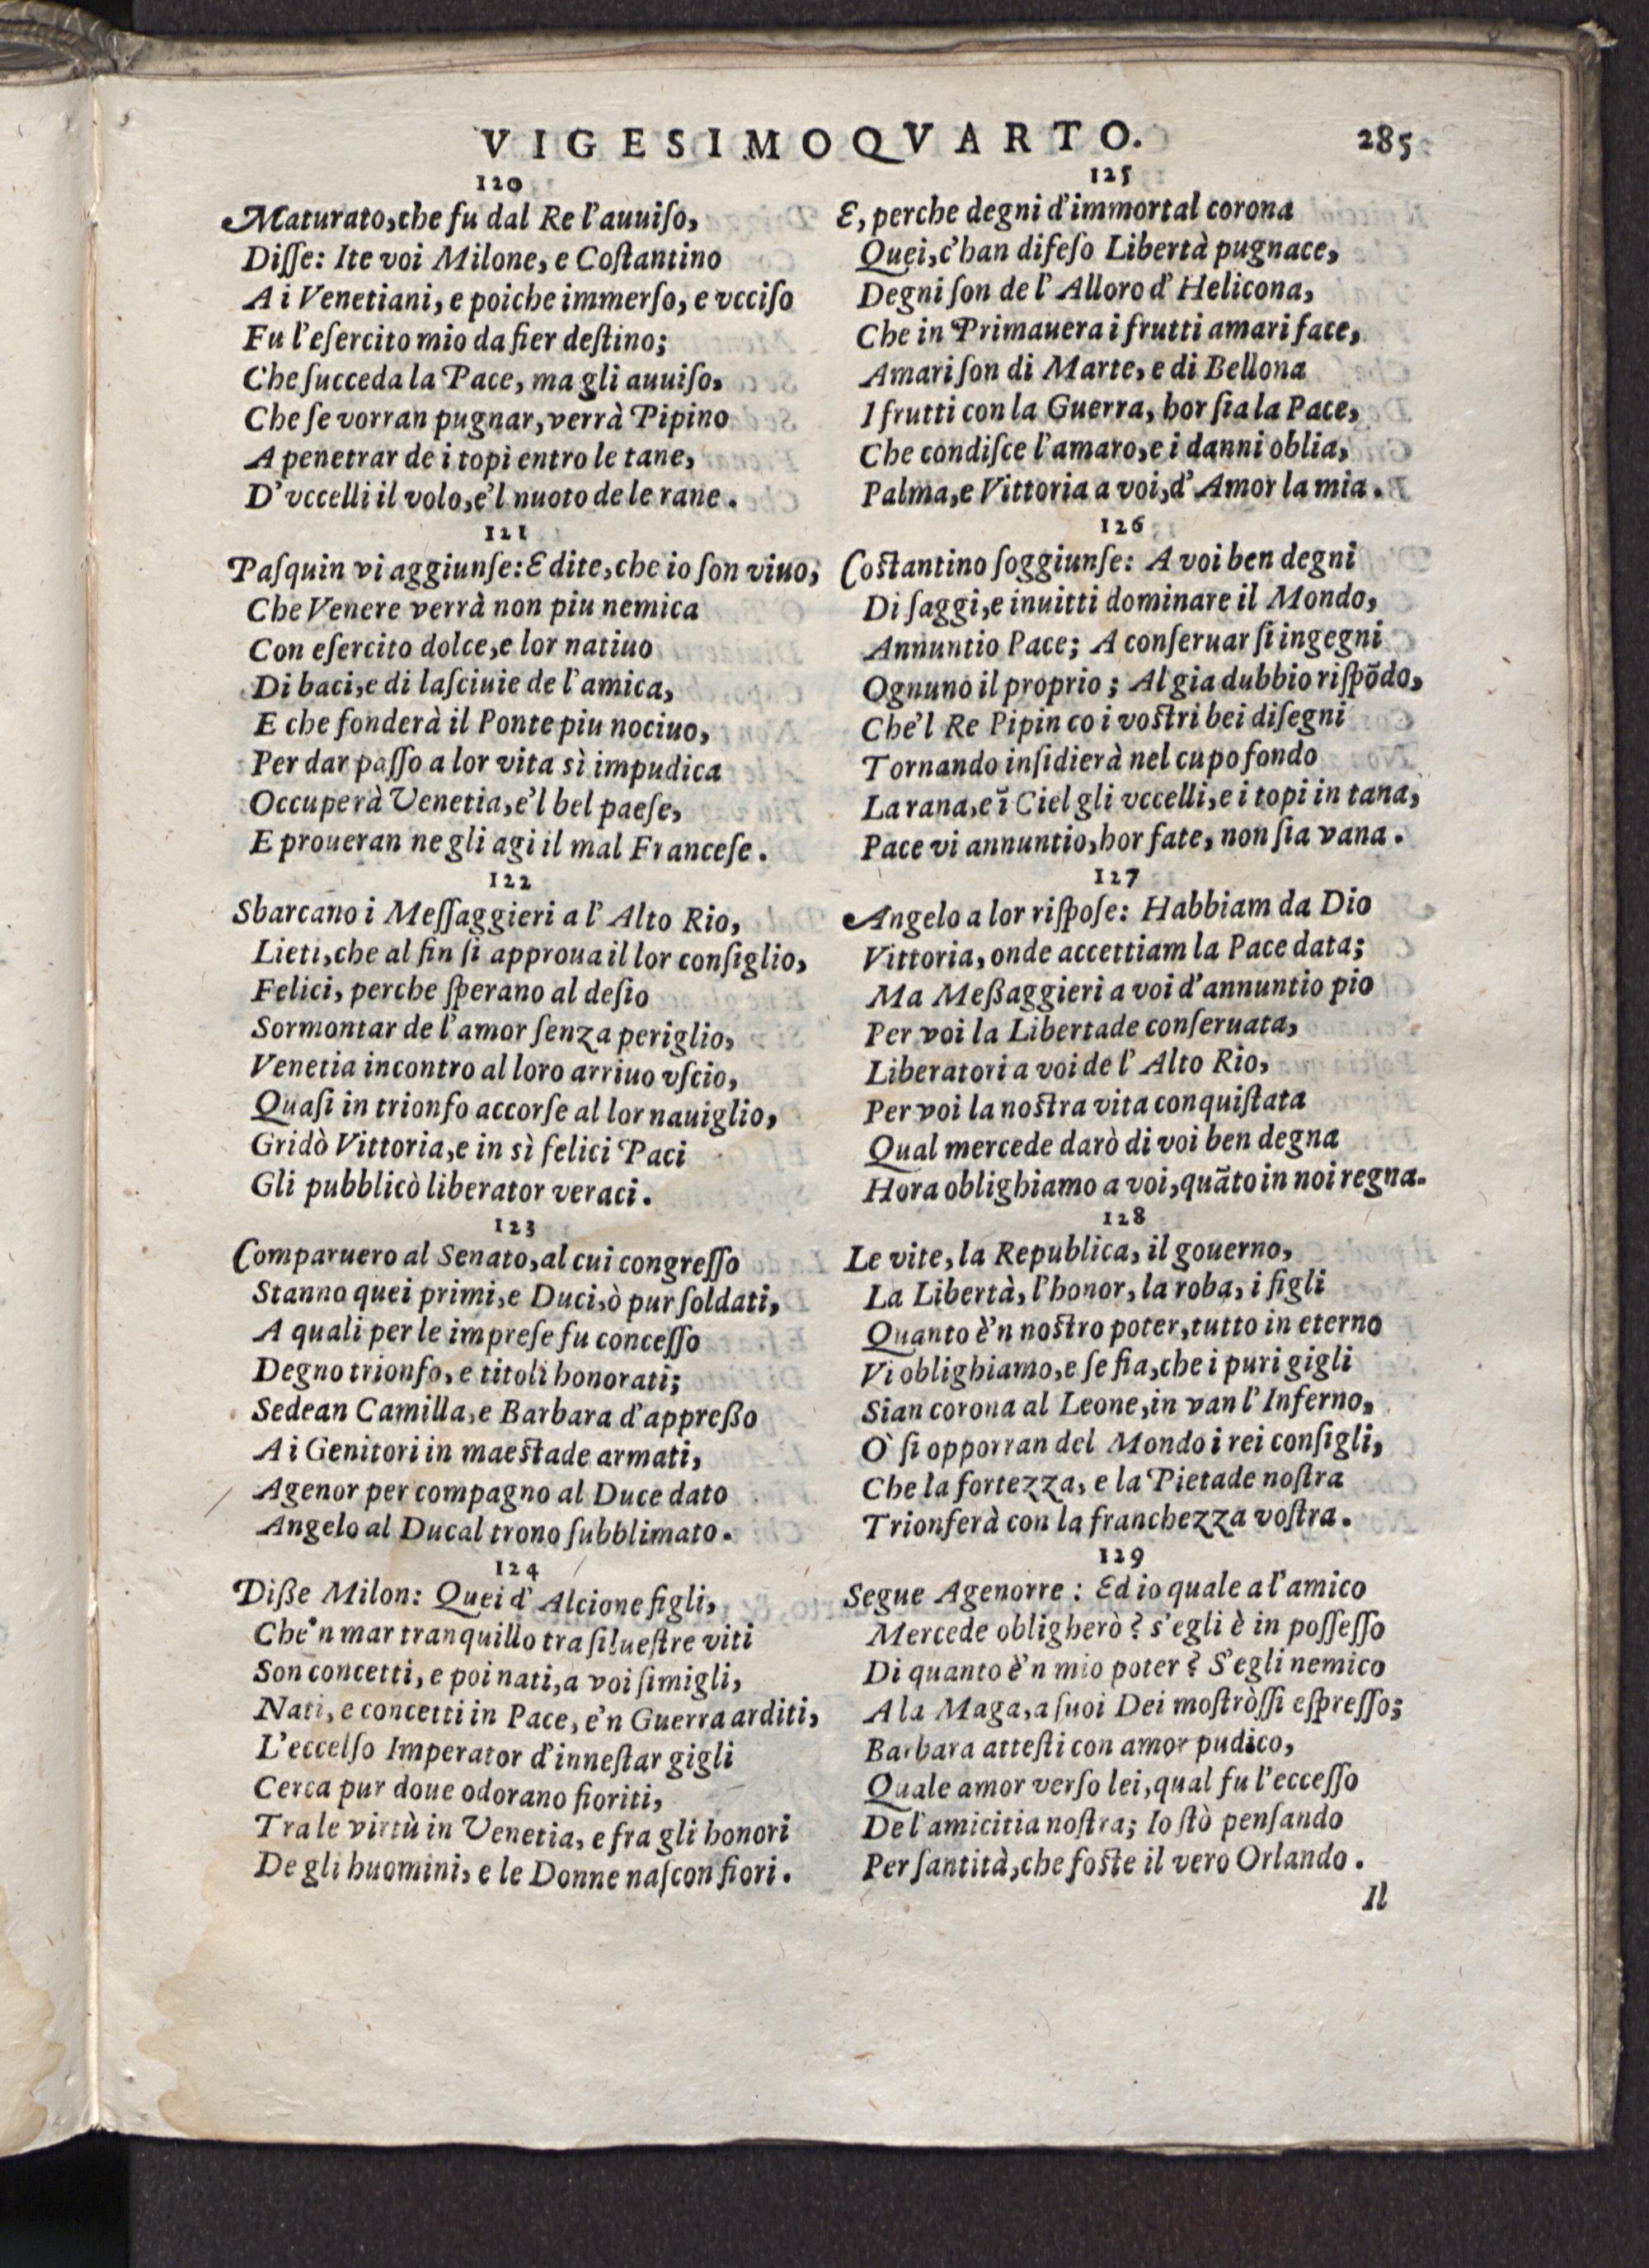 VIGESIMOQVARTO. 285
120
Maturato, che fu dal Re l'auuiſo,
Diſſe: Ite voi Milone, e Coſtantino
A i Venetiani, e poiche immerſo, e vcciſo
Fu l'eſercito mio da fier deſtino;
Che ſucceda la Pace, ma gli auuiſo,
Che ſe vorran pugnar, verrà Pipino
A penetrar de i topi entro le tane,
D'vccelli il volo, e'l nuoto de le rane.
121
Paſquin vi aggiunſe: E dite, che io ſon viuo,
Che Venere verrà non piu nemica
Con eſercito dolce, e lor natiuo
Di baci, e di laſciuie de l'amica,
E che fonderà il Ponte piu nociuo,
Per dar paſſo a lor vita sì impudica
Occuperà Venetia, e'l bel paeſe,
E proueran ne gli agi il mal Franceſe.
122
Sbarcano i Meſſaggieri a l'Alto Rio,
Lieti, che al fin ſi approua il lor conſiglio,
Felici, perche ſperano al deſio
Sormontar de l'amor ſenza periglio,
Venetia incontro al loro arriuo vſcio,
Quaſi in trionfo accorſe al lor nauiglio,
Gridò Vittoria, e in sì felici Paci
Gli pubblicò liberator veraci.
123
Comparuero al Senato, al cui congreſſo
Stanno quei primi, e Duci, ò pur ſoldati,
A quali per le impreſe fu conceſſo
Degno trionfo, e titoli honorati;
Sedean Camilla, e Barbara d'appreßo
A i Genitori in maeſtade armati,
Agenor per compagno al Duce dato
Angelo al Ducal trono ſubblimato.
124
Diße Milon: Quei d'Alcione figli,
Che'n mar tranquillo tra ſilueſtre viti
Son concetti, e poi nati, a voi ſimigli,
Nati, e concetti in Pace, e'n Guerra arditi,
L'eccelſo Imperator d'inneſtar gigli
Cerca pur doue odorano fioriti,
Tra le virtù in Venetia, e fra gli honori
De gli huomini, e le Donne naſcon fiori.
125
E, perche degni d'immortal corona
Quei, c'han difeſo Libertà pugnace,
Degni ſon de l'Alloro d'Helicona,
Che in Primauera i frutti amari face,
Amari ſon di Marte, e di Bellona
I frutti con la Guerra, hor ſia la Pace,
Che condiſce l'amaro, e i danni oblia,
Palma, e Vittoria a voi, d'Amor la mia.
126
Coſtantino ſoggiunſe: A voi ben degni
Di ſaggi, e inuitti dominare il Mondo,
Annuntio Pace; A conſeruar ſi ingegni
Ognuno il proprio; Al gia dubbio riſpõdo,
Che'l Re Pipin co i voſtri bei diſegni
Tornando inſidierà nel cupo fondo
La rana, e ĩ Ciel gli vccelli, e i topi in tana,
Pace vi annuntio, hor fate, non ſia vana.
127
Angelo a lor riſpoſe: Habbiam da Dio
Vittoria, onde accettiam la Pace data;
Ma Meßaggieri a voi d'annuntio pio
Per voi la Libertade conſeruata,
Liberatori a voi de l'Alto Rio,
Per voi la noſtra vita conquiſtata
Qual mercede darò di voi ben degna
Hora oblighiamo a voi, quãto in noi regna.
128
Le vite, la Republica, il gouerno,
La Libertà, l'honor, la roba, i figli
Quanto è'n noſtro poter, tutto in eterno
Vi oblighiamo, e ſe fia, che i puri gigli
Sian corona al Leone, in van l'Inferno,
Ò ſi opporran del Mondo i rei conſigli,
Che la fortezza, e la Pietade noſtra
Trionferà con la franchezza voſtra.
129
Segue Agenorre: Ed io quale a l'amico
Mercede obligherò? s'egli è in poſſeſſo
Di quanto è'n mio poter? S'egli nemico
A la Maga, a ſuoi Dei moſtròſſi eſpreſſo;
Barbara atteſti con amor pudico,
Quale amor verſo lei, qual fu l'ecceſſo
De l'amicitia noſtra; Io ſtò penſando
Per ſantità, che foſte il vero Orlando.
Il